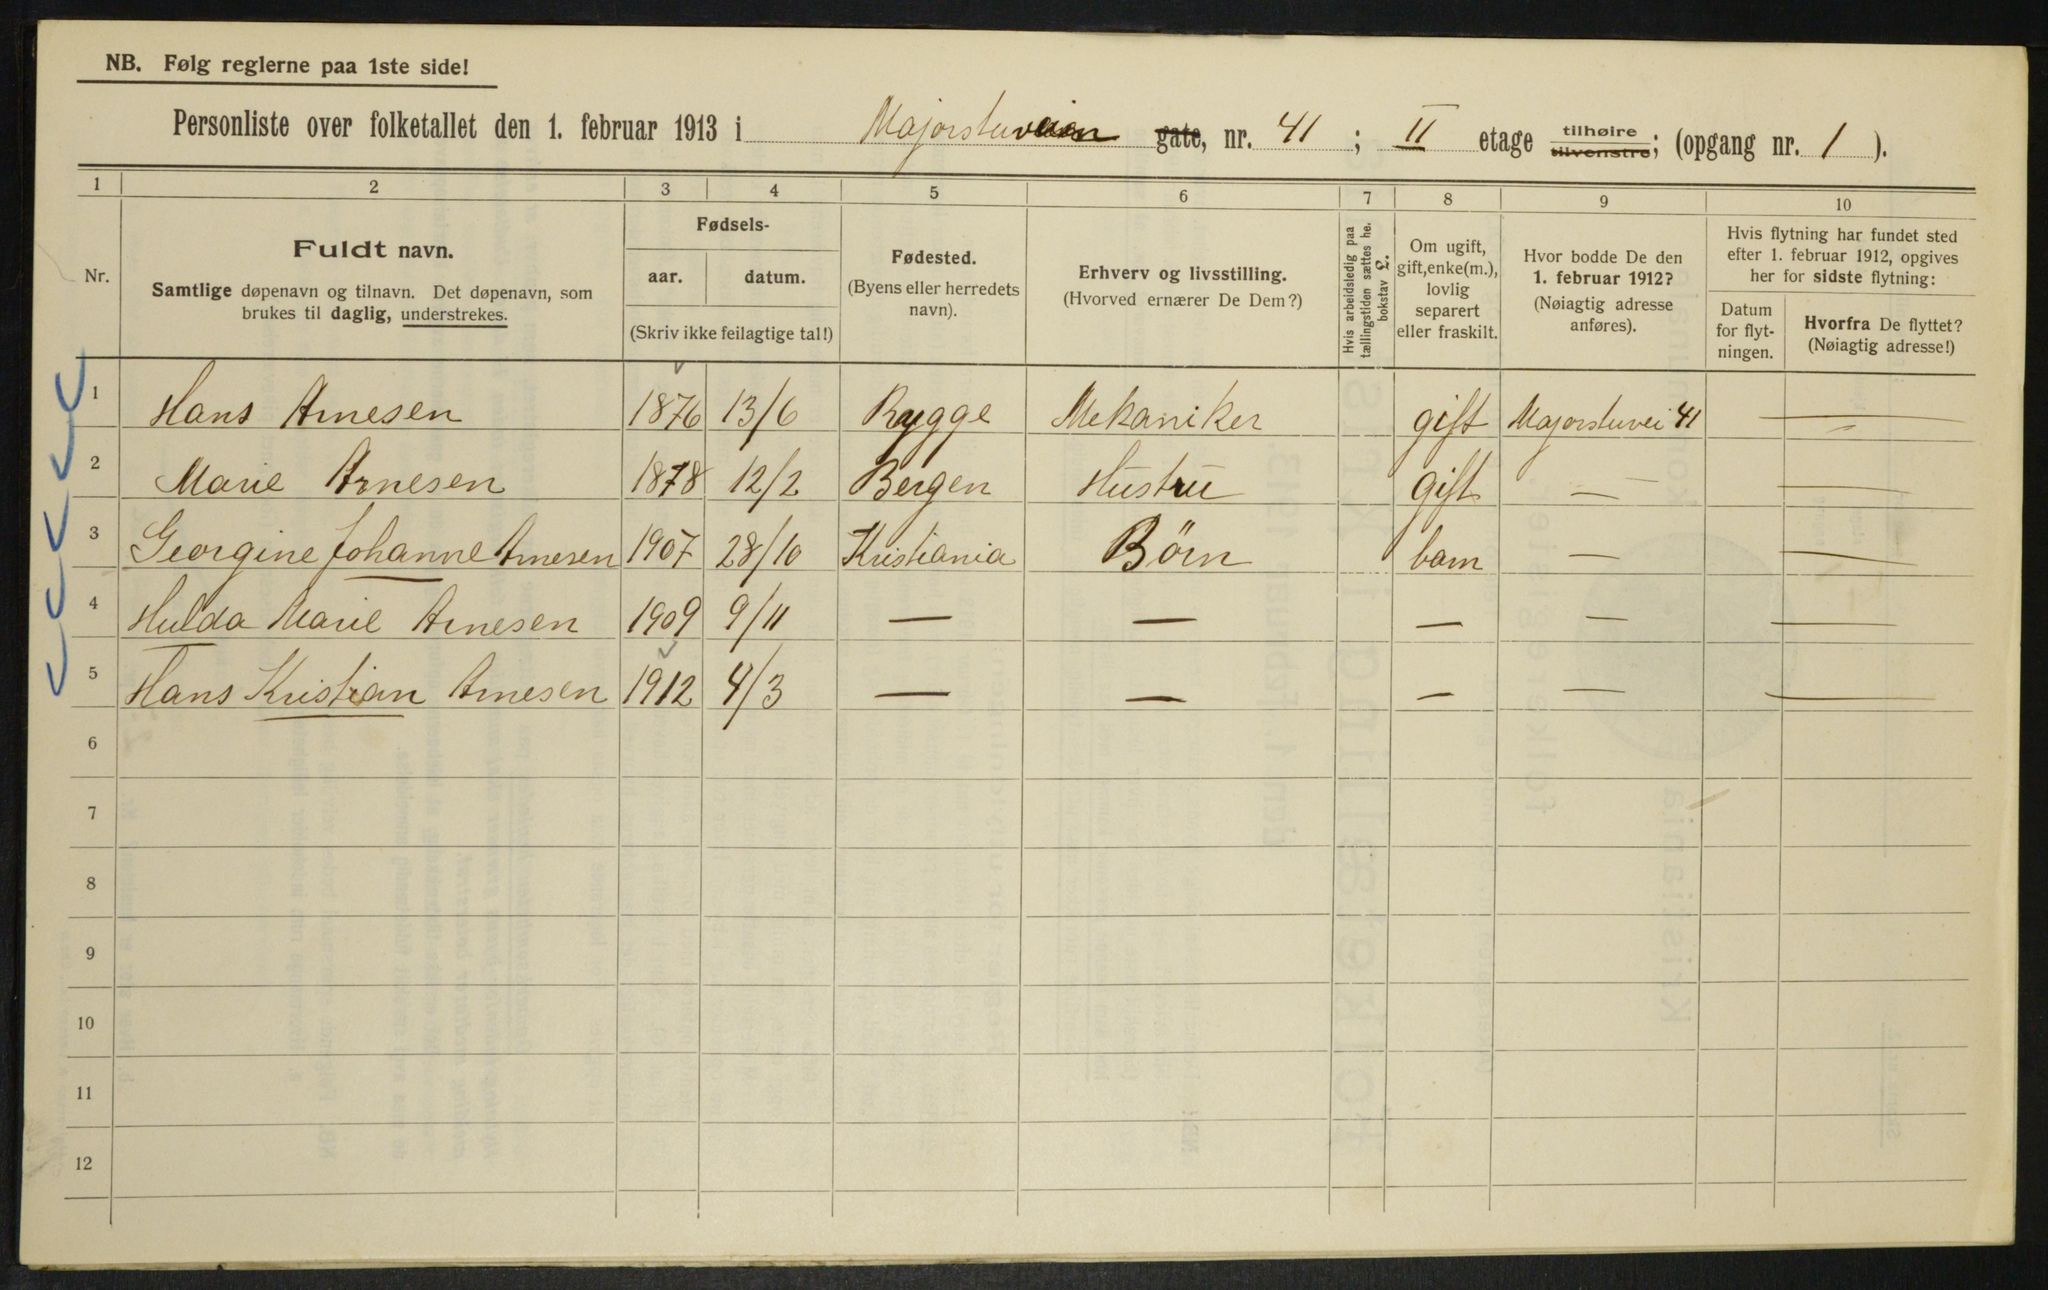 NB. Følg reglerne paa 1ste side!
Personliste over folketallet den 1. februar 1913 i Majorstuveien gate, nr. 41 ; II etage tilhøire tilvenstre; (opgang nr. 1 ).
1 2 3 4 5 6 7 8 9 10
Nr.
Fuldt navn.
Samtlige døpenavn og tilnavn. Det døpenavn, som
brukes til daglig, understrekes.
Fødsels-
aar. datum.
(Skriv ikke feilagtige tal!)
Fødested.
(Byens eller herredets
navn).
Erhverv og livsstilling.
(Hvorved ernærer De Dem?)
Hvis arbeidsledig paa
tællingstiden sættes he.
bokstav £.
Om ugift,
gift,enke(m.),
lovlig
separert
eller fraskilt.
Hvor bodde De den
1. februar 1912?
(Nøiagtig adresse
anføres).
Hvis flytning har fundet sted
efter 1. februar 1912, opgives
her for sidste flytning:
Datum
for flyt-
ningen.
Hvorfra De flyttet?
(Nøiagtig adresse!)
1 Hans Arnesen 1876 13/6 Rygge Mekaniker gift Majorstuvei 41 —
2 Marie Arnesen 1878 12/2 Bergen Hustru gift — —
3 Georgine Johanne Arnesen 1907 28/10 Kristiania Börn barn — —
4 Hulda Marie Arnesen 1909 9/11 — — — — —
5 Hans Kristian Arnesen 1912 4/3 — — — — —
6
7
8
9
10
11
12